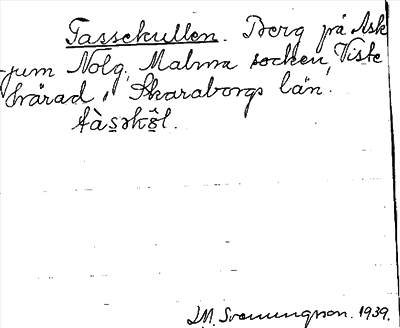 Tassekullen. Berg på Ask
jum Nolg, Malma socken, Viste
härad, Skaraborgs län.
tàs̱ək̂s̱l.
I.M. Svenungsson. 1939.